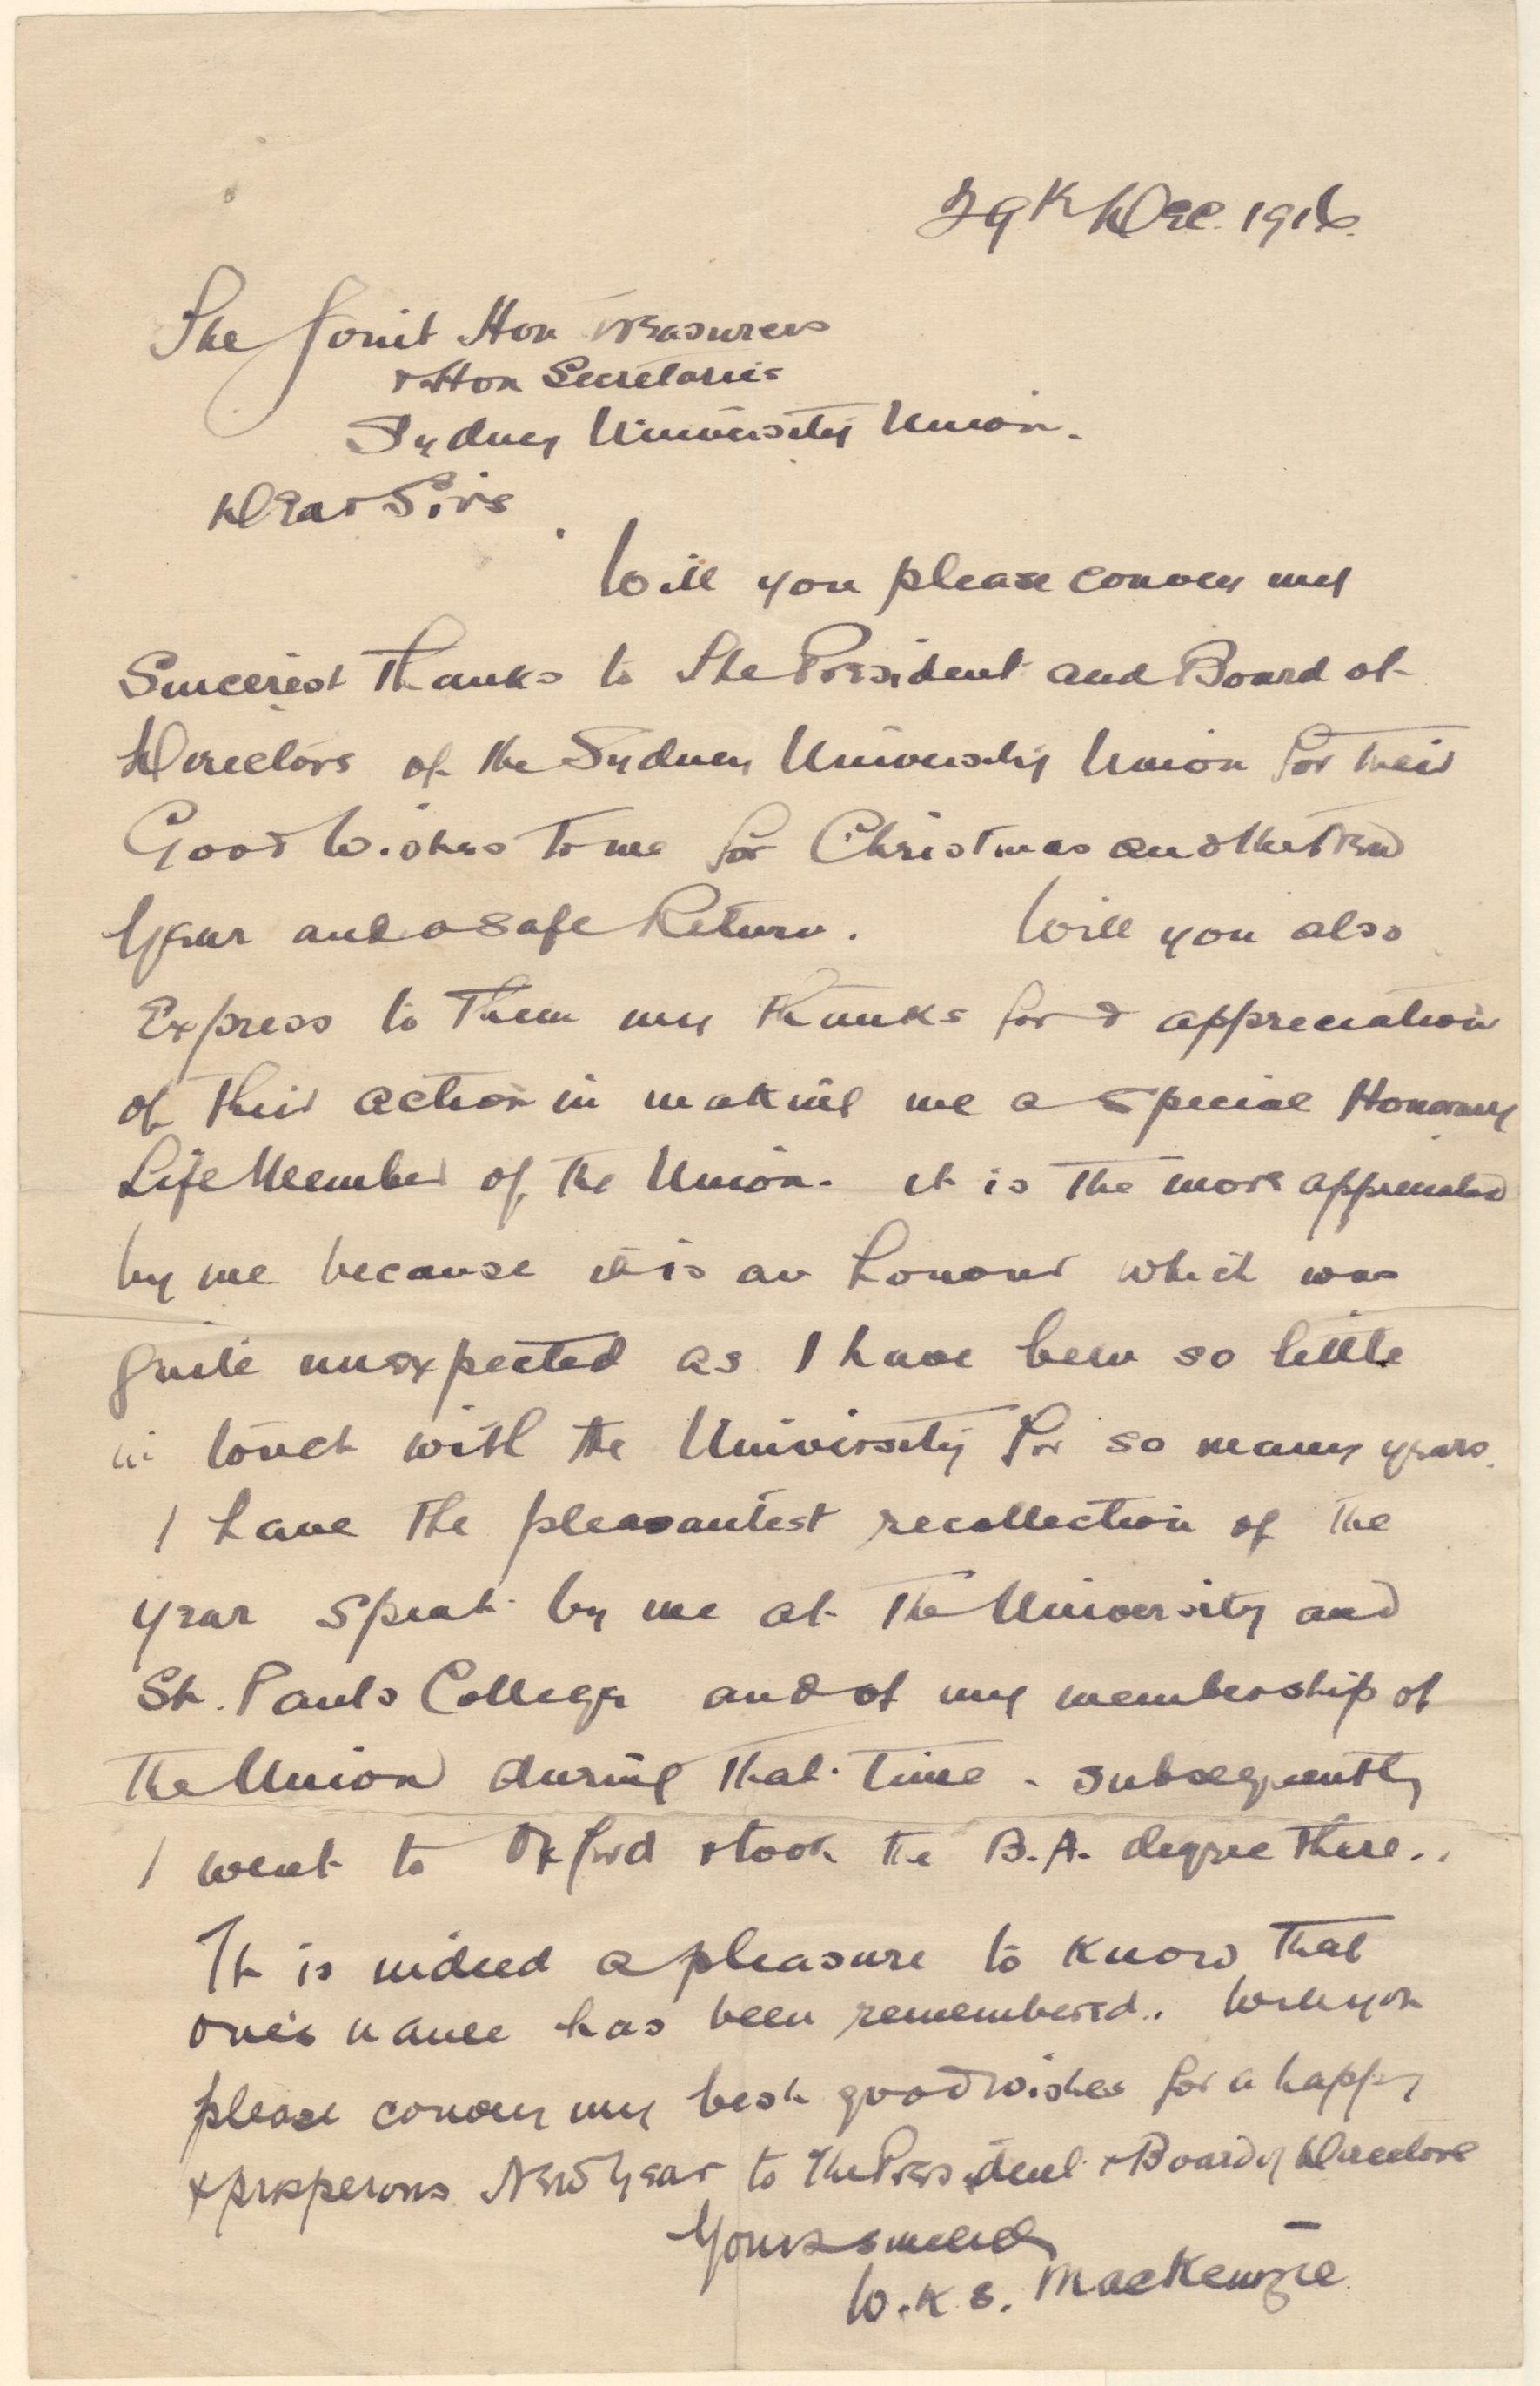 29th Dec. 1916.
The Joint Hon Treasurers
& Hon Secretaries
Sydney University Union.
Dear Sirs
Will you please convey my
Sincerest Thanks to The President and Board of
Directors of the Sydney University Union for their
Good Wishes to me for Christmas and the New
Year and a safe Return. Will you also
Express to Them my thanks for & appreciation
of their action in making me a special Honorary
Life Member of the Union. it is the more appreciated
by me because it is an honour which was
quite unexpected as I have been so little
in touch with the University for so many years.
I have the pleasantest recollection of the
year spent by me at the University and
St. Pauls College and of my membership of
the Union during that time. subsequently
I went to Oxford & took the B.A. degree there..
It is indeed a pleasure to know that
one's name has been remembered.. Will you
please convey my best good wishes for a happy
& prosperous New Year to the President & Board of Directors
Yours sincerely
W.K.S. MacKenzie